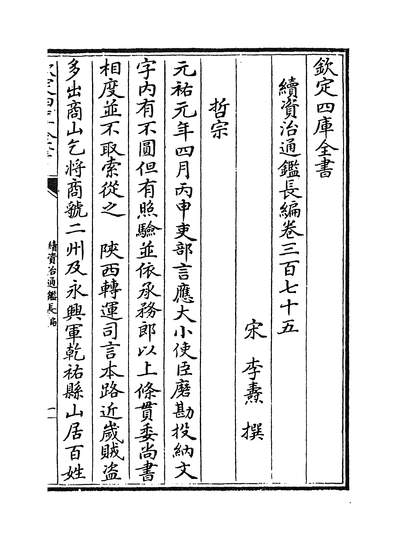 欽定四庫全書
續資治通鑑長編卷三百七十五
宋 李燾 撰
哲宗
元祐元年四月丙申吏部言應大小使臣磨勘投納文
字内有不圓但有照驗並依承務郎以上條貫委尚書
相度並不取索從之 陜西轉運司言本路近歲賊盗
多出商山乞將商虢二州及永興軍乾祐縣山居百姓
續資治通鑑長編
一